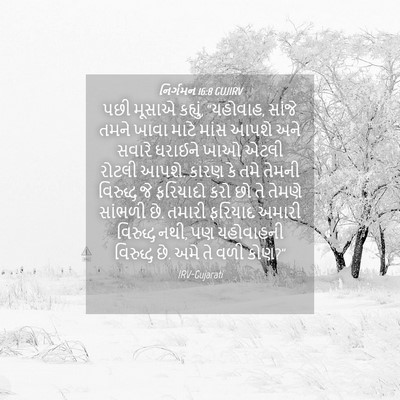 નિર્ગમન 16:8 GUJIRV
પછી મૂસાએ કહ્યું, “યહોવાહ, સાંજે
તમને ખાવા માટે માંસ આપશે અને
સવારે ધરાઈને ખાઓ એટલી
રોટલી આપશે. કારણ કે તમે તેમની
વિરુદ્ધ જે ફરિયાદો કરો છો તે તેમણે
સાંભળી છે. તમારી ફરિયાદ અમારી
વિરુદ્ધ નથી, પણ યહોવાહની
વિરુદ્ધ છે. અમે તે વળી કોણ?”
IRV-Gujarati